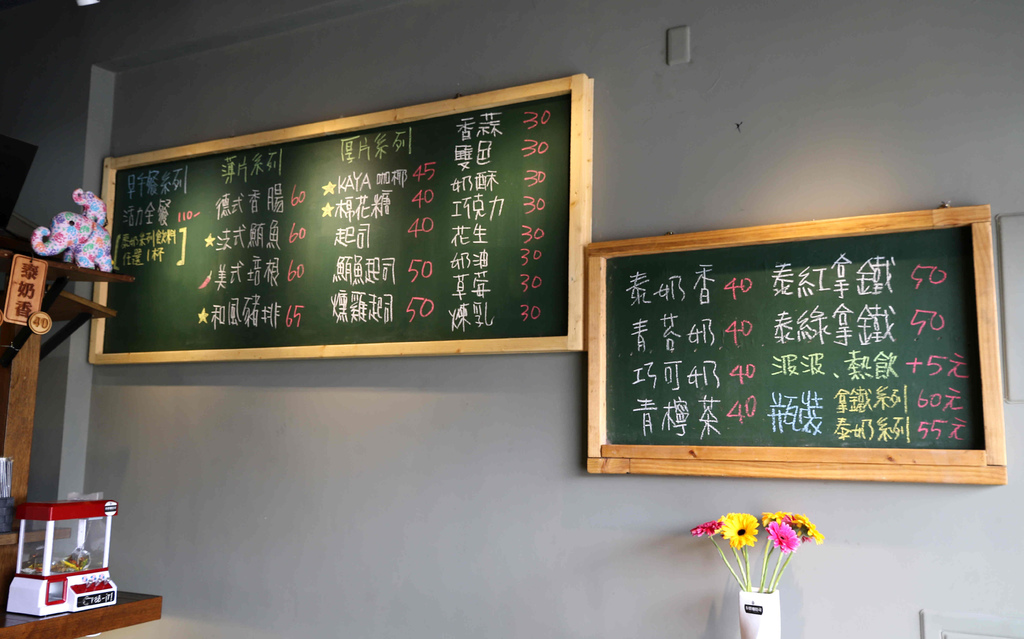 早午餐系列
活力全餐 110-
泰奶系列飲料
任選1杯
薄片系列
德式香腸 60
法式鮪魚 60
美式培根 60
和風豬排 65
厚片系列
KAYA 咖椰 45
棉花糖 40
起司 40
鮪魚起司 50
燻雞起司 50
香蒜 30
雙色 30
奶酥 30
巧克力 30
花生 30
奶油 30
草莓 30
煉乳 30
泰奶香 40
青蓉奶 40
巧可奶 40
青檸茶 40
泰紅拿鐵 50
泰綠拿鐵 50
波波、熱飲 +5元
瓶裝 拿鐵系列 60元
泰奶系列 55元
泰奶香
40